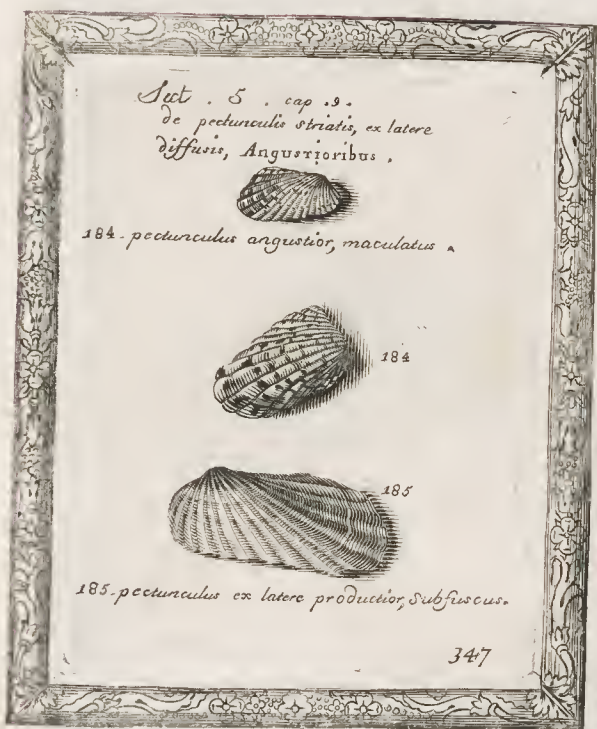 Sect . 5 . cap . 9 .
de pectunculis striatis, ex latere
diffusis, Angustioribus .
184 - pectunculus angustior, maculatus .
184
185
185 - pectunculus ex latere productior, Subfuscus.
347